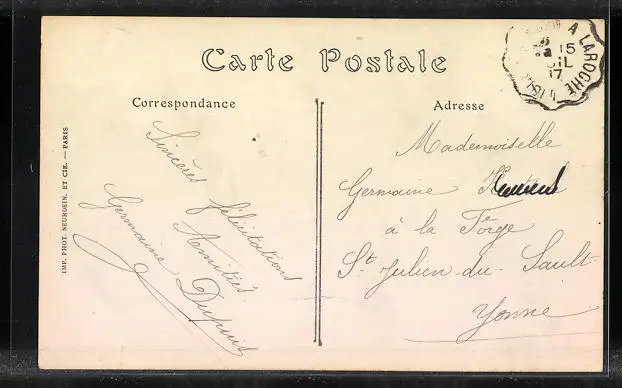 Carte Postale
A LAROCHE
15
17
Correspondance
Adresse
IMP. PHOT. NEURDEIN. ET CIE. — PARIS
Sincères félicitations
Amitiés
Germaine Dupuis
Mademoiselle
Germaine
à la Forge
St Julien-du-Sault
Yonne